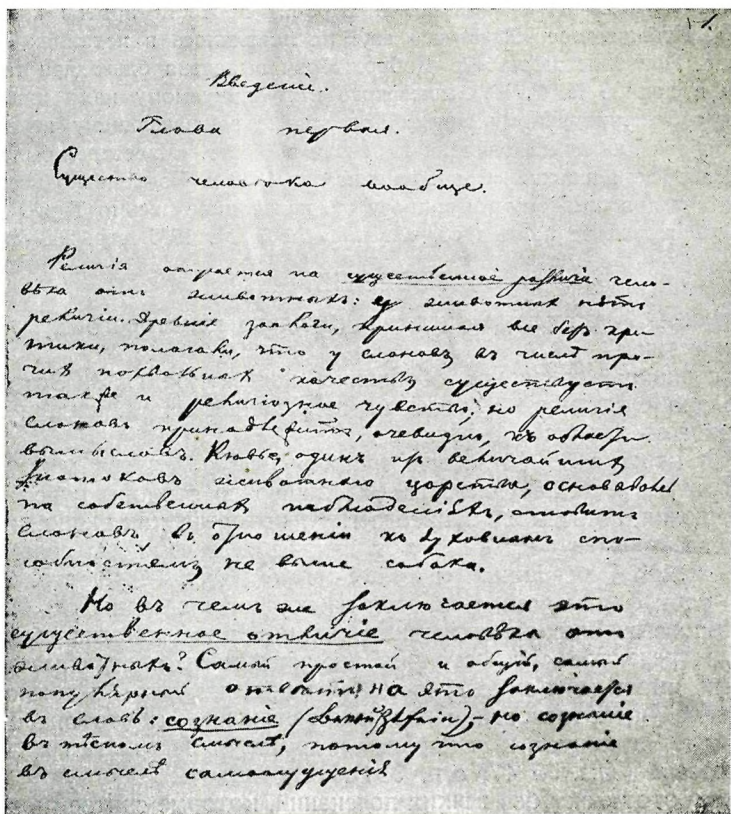 1.
Введеніе.
Глава первая.
Существо человѣка вообще.
Религія опирается на существенное различіе чело-
вѣка отъ животныхъ: у животныхъ нѣтъ
религіи. Древніе зоологи, принимая все безъ кри-
тики, полагали, что у слоновъ въ числѣ про-
чихъ похвальныхъ качествъ существуетъ
также и религіозное чувство; но религія
слоновъ принадлежитъ, очевидно, къ области
вымысловъ. Кювье, одинъ изъ величайшихъ
знатоковъ животнаго царства, основываясь
на собственныхъ наблюденіяхъ, ставитъ
слоновъ, въ отношеніи къ духовнымъ спо-
собностямъ, не выше собаки.
Но въ чемъ же заключается это
существенное отличіе человѣка отъ
животныхъ? Самый простой и общій, самый
популярный отвѣтъ на это заключается
въ словѣ: сознаніе (Bewußtsein), – но сознаніе
въ тѣсномъ смыслѣ, потому что сознаніе
въ смыслѣ самоощущенія